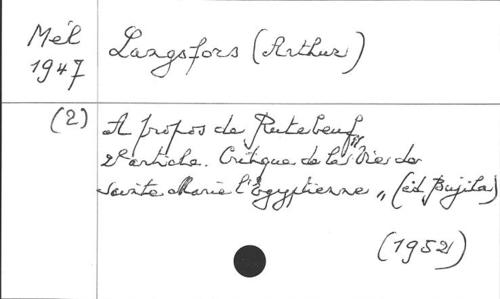 Mél
1947
Langsfors (Arthur)
(2)
A propos de Rutebeuf
2e article. Critique de la "Vie de
sainte Marie l'Egyptienne" (éd. Bujila)
(1952)